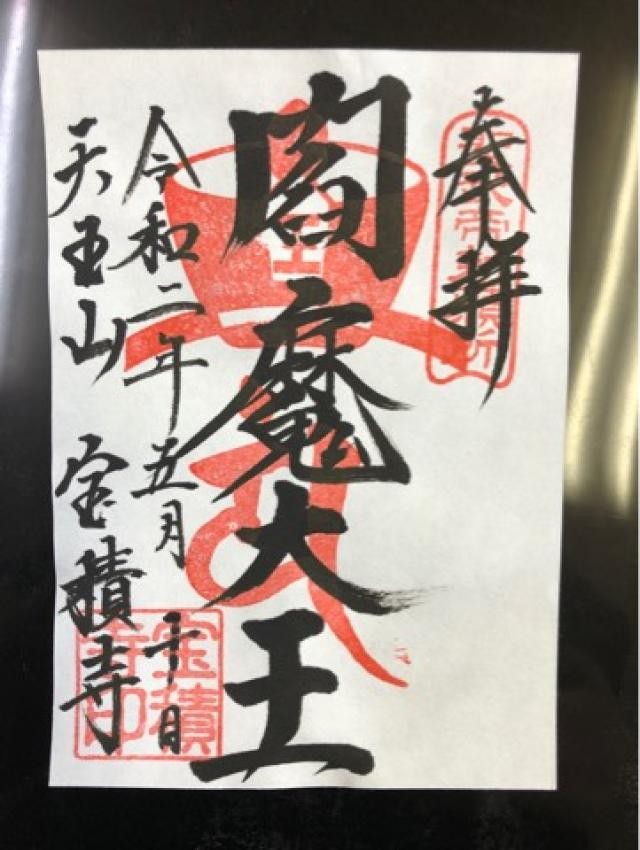 奉拝
閻魔大王
令和二年五月十日
天王山 宝積寺
宝積
寺印